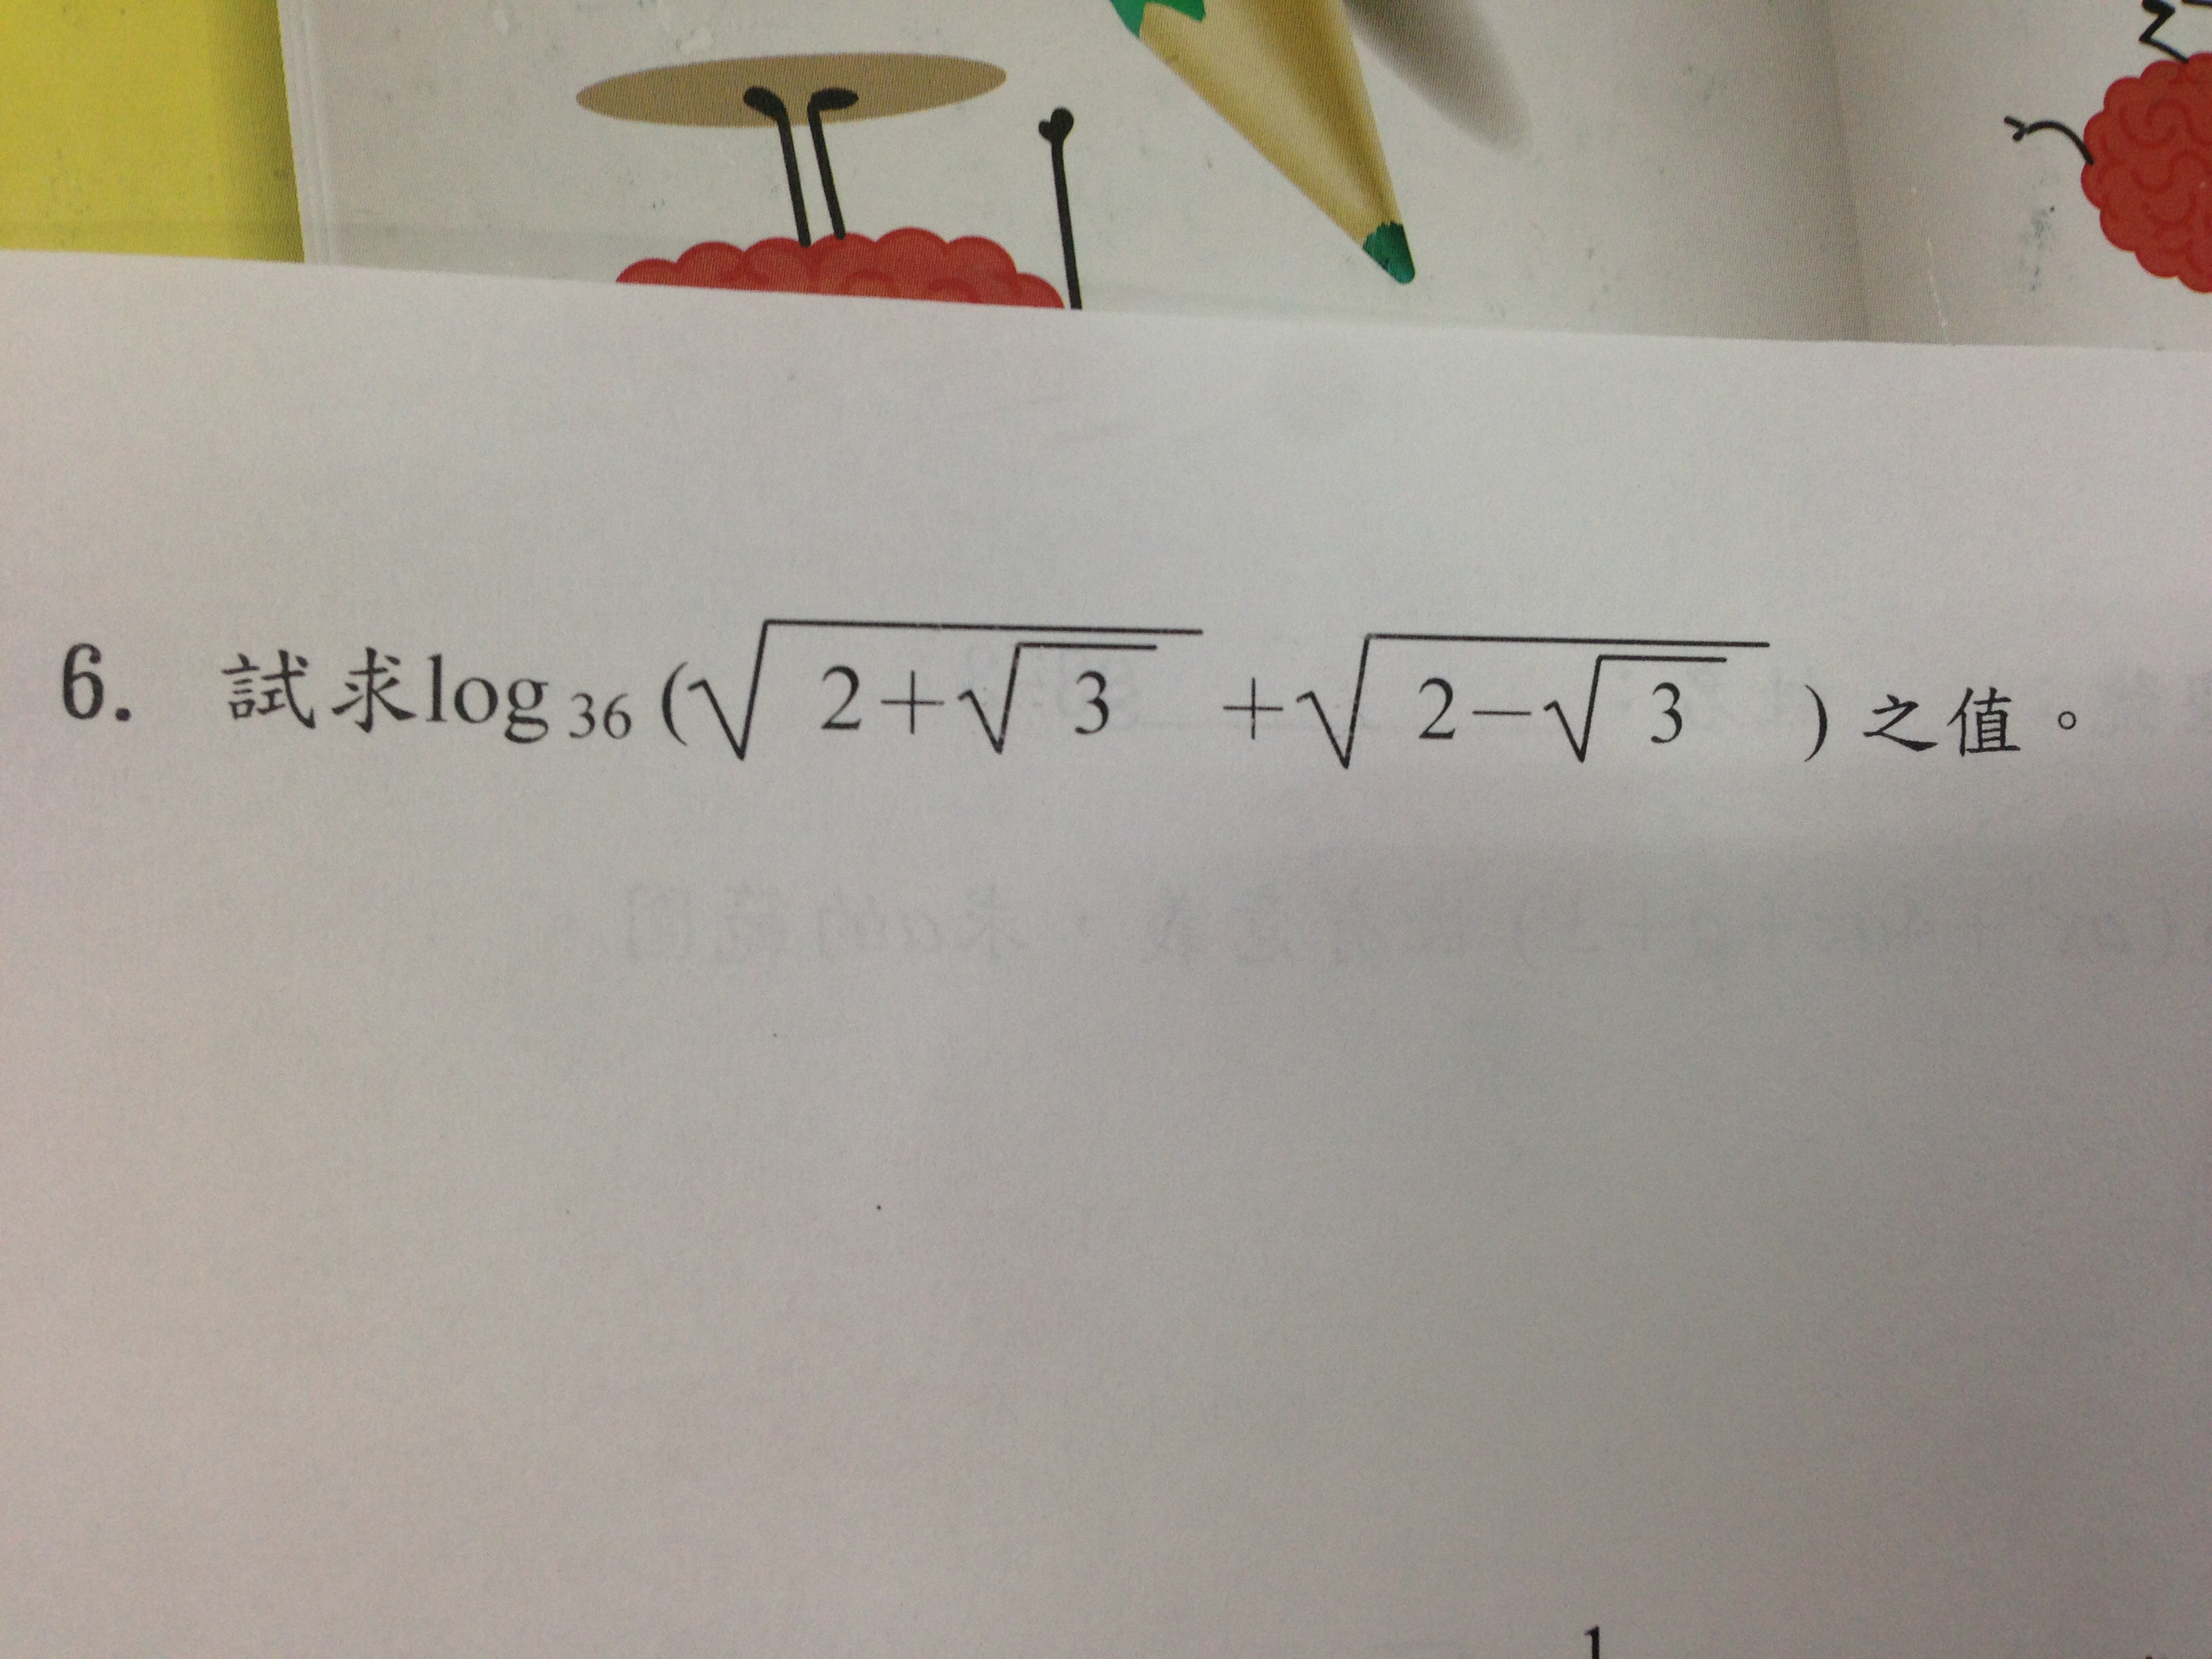 6. 試求log₃₆(√(2+√3) +√(2−√3)) 之值。
1